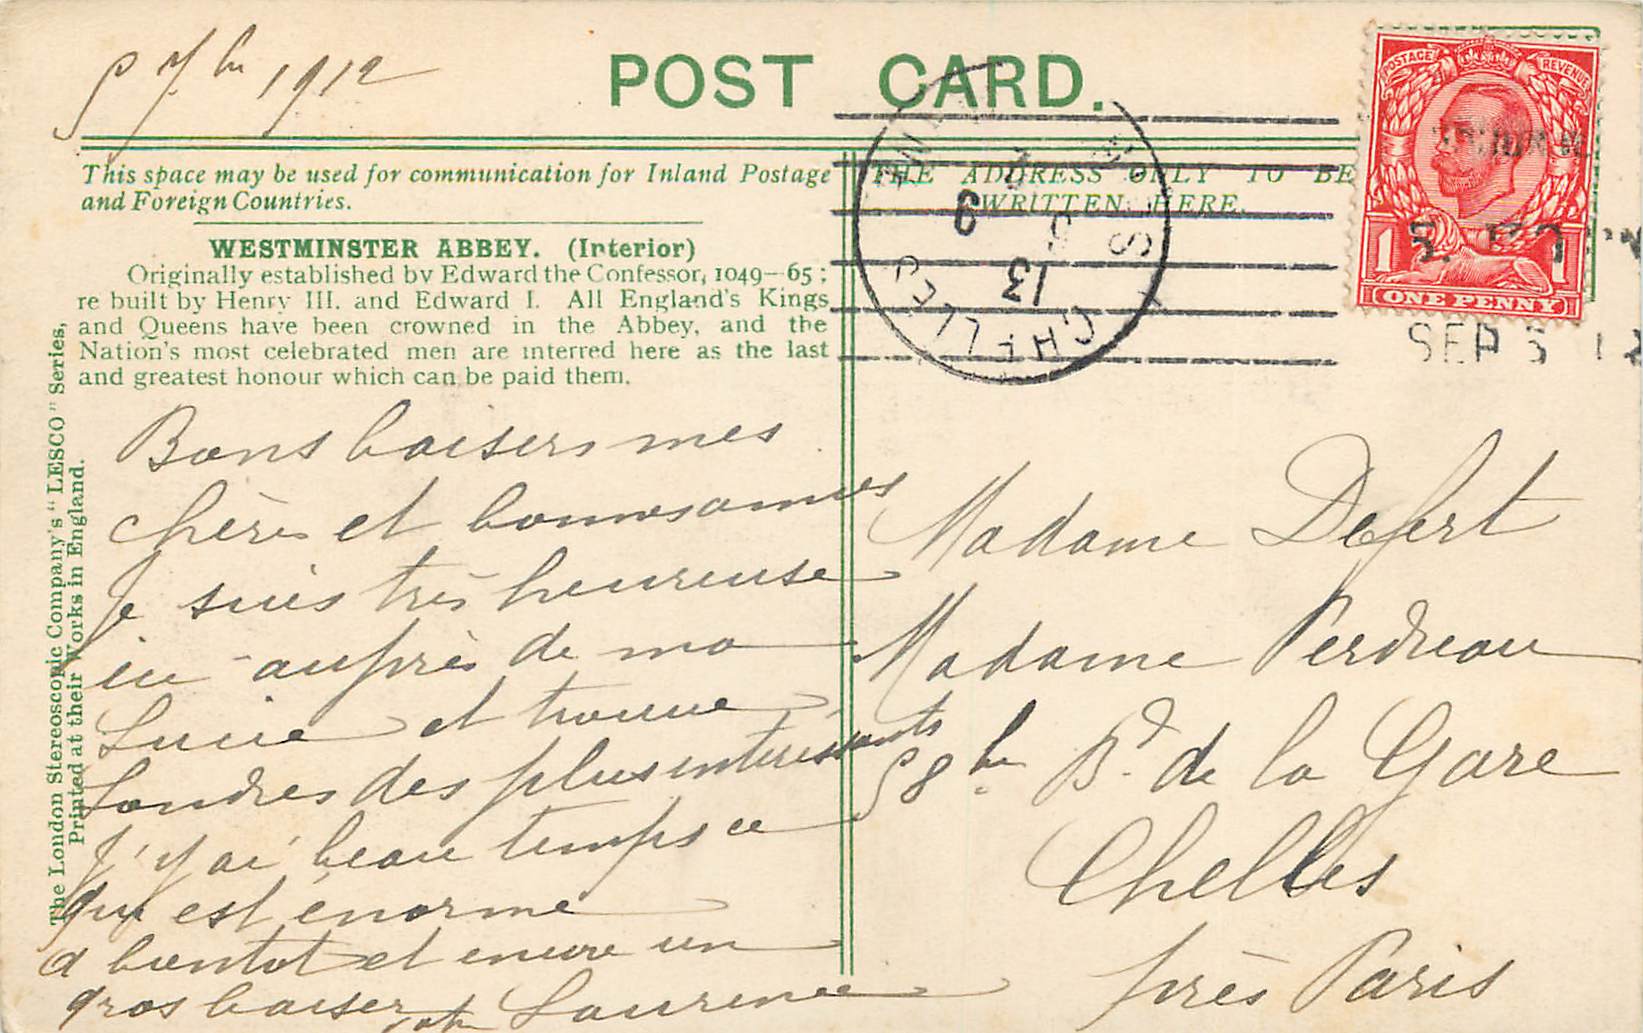 5 7bre 1912
POST CARD.
This space may be used for communication for Inland Postage
and Foreign Countries.
THE ADDRESS ONLY TO BE
WRITTEN HERE.
WESTMINSTER ABBEY. (Interior)
Originally established by Edward the Confessor, 1049-65;
re built by Henry III. and Edward I. All England's Kings
and Queens have been crowned in the Abbey, and the
Nation's most celebrated men are interred here as the last
and greatest honour which can be paid them.
The London Stereoscopic Company's "LESCO" Series,
Printed at their Works in England.
Bons baisers mes
chères et bonnes amies
Je suis très heureuse
ici auprès de ma
Lucie et trouve
Londres des plus intéressants
J'y ai beau temps ce
qui est énorme
a bientot et encore un
gros baiser votre Laurence
Madame Defert
Madame Perdreau
58 bis Bd. de la Gare
Chelles
près Paris
POSTAGE
REVENUE
1
1
ONE PENNY
SEP 5 12
CHELLES
13
9